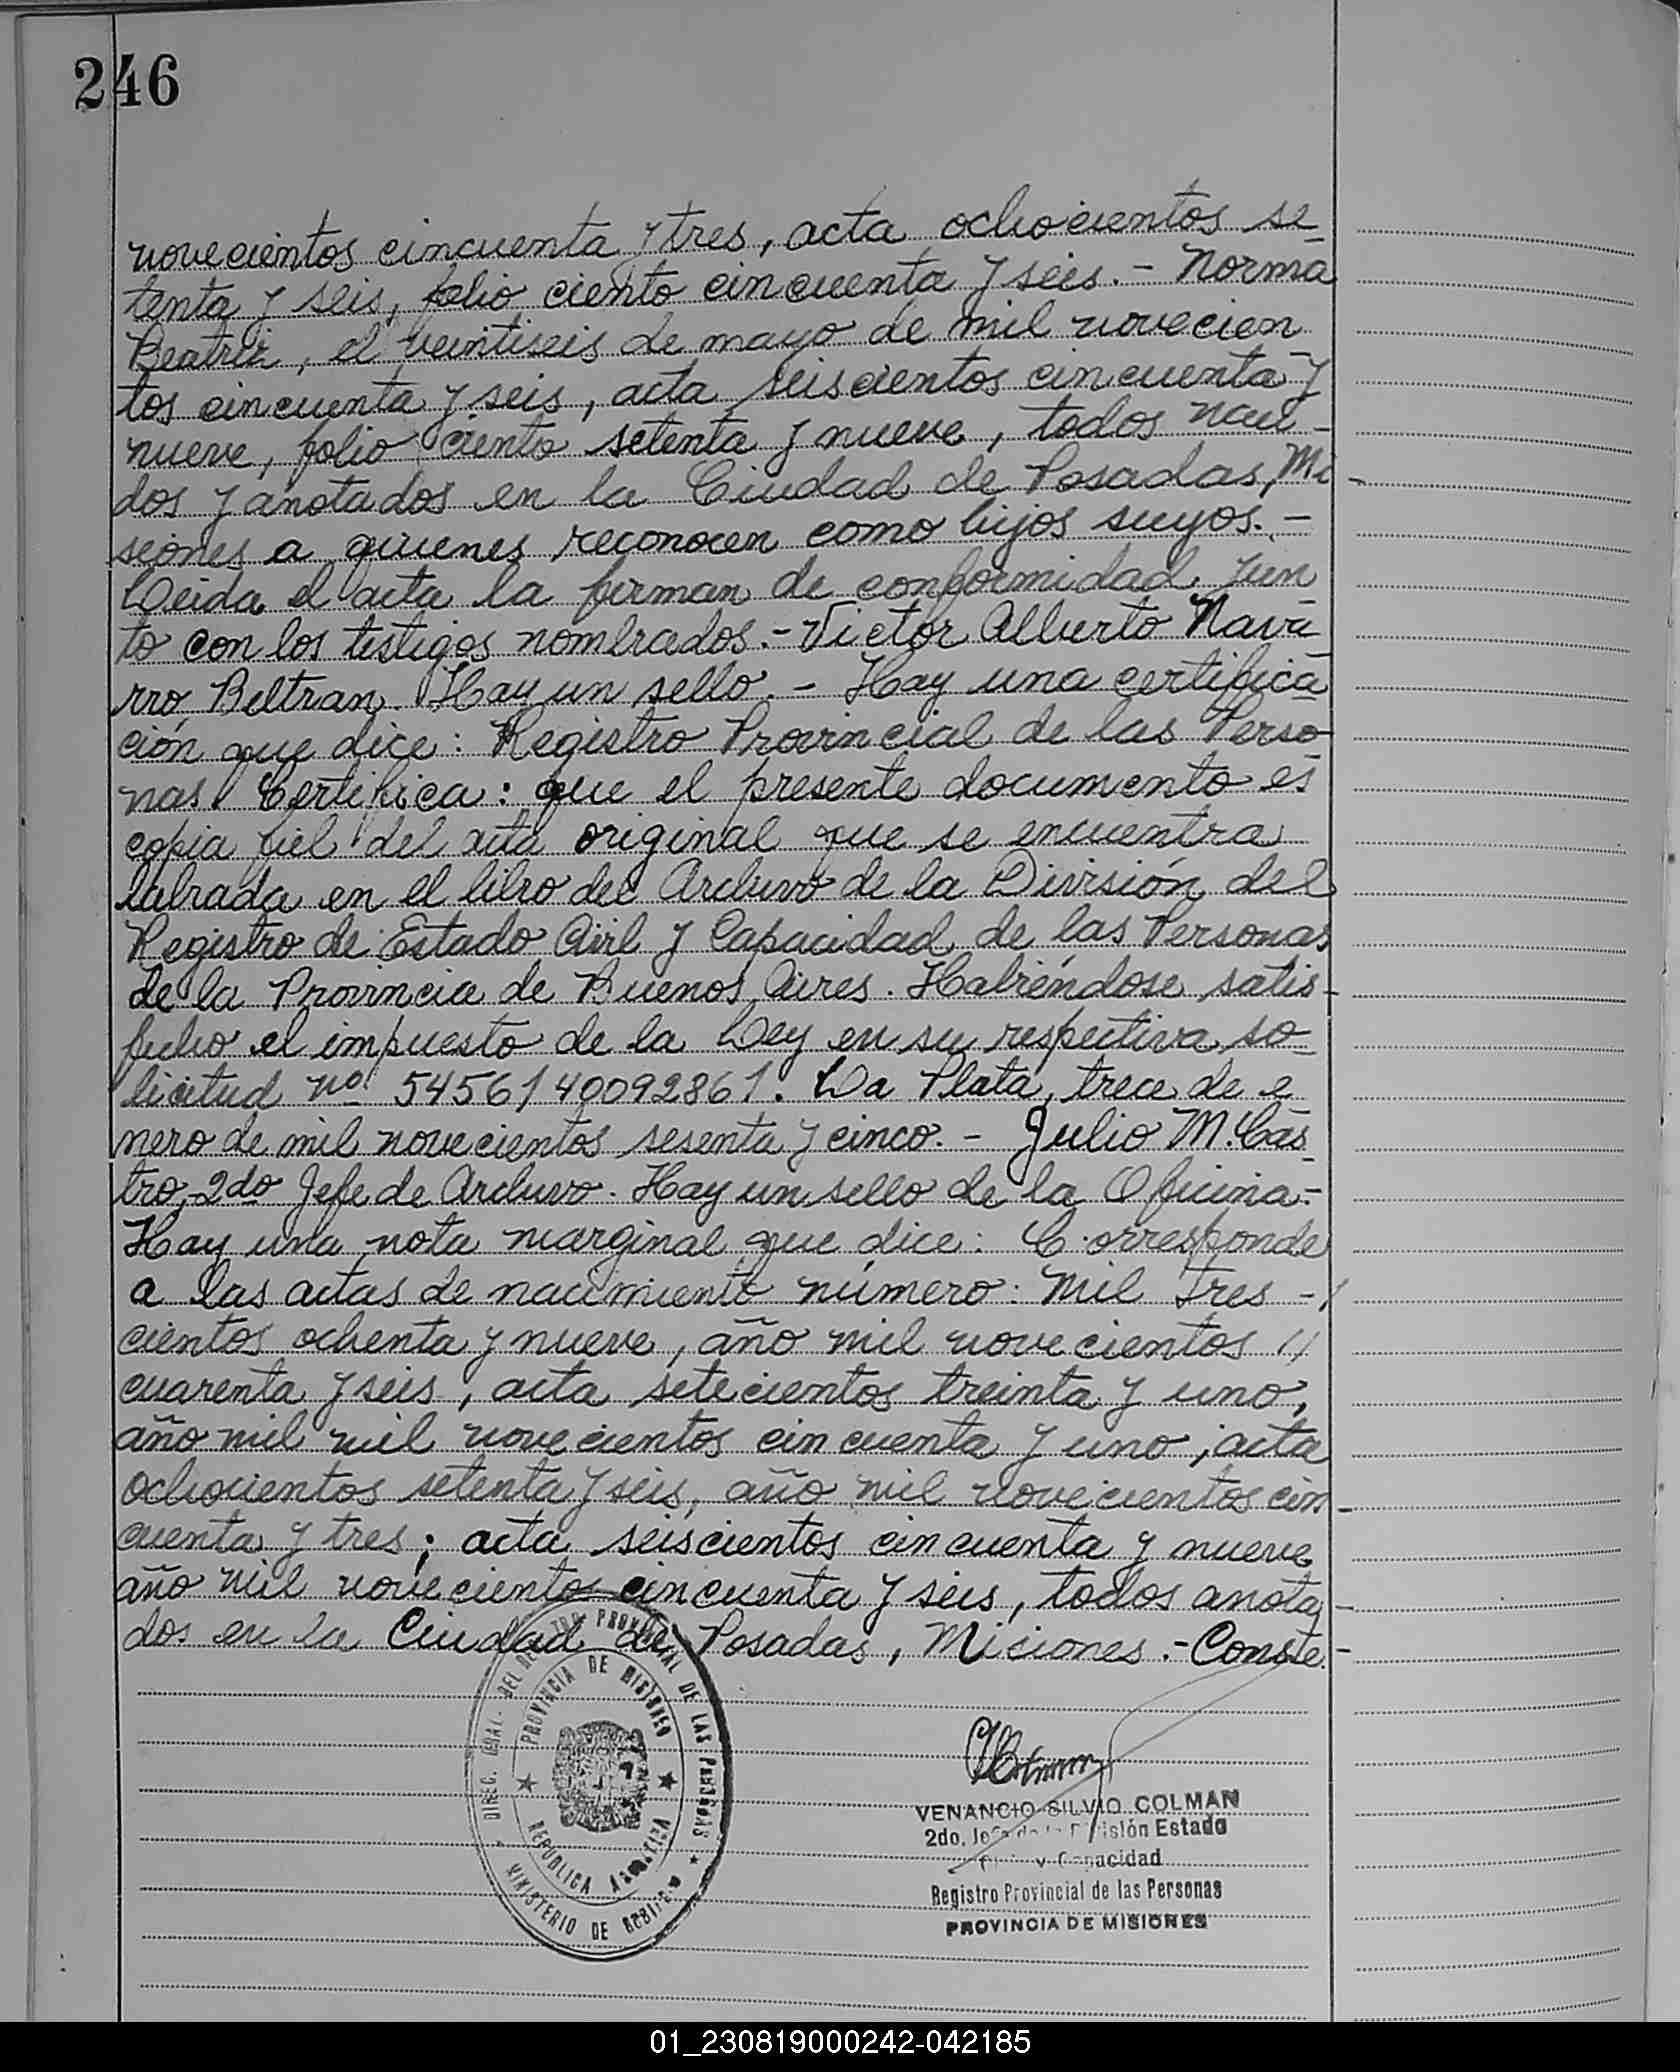 246
novecientos cincuenta y tres, acta ochocientos se-
tenta y seis, folio ciento cincuenta y seis.- Norma
Beatriz, el veintiseis de mayo de mil novecien-
tos cincuenta y seis, acta seiscientos cincuenta y
nueve, folio ciento setenta y nueve, todos naci-
dos y anotados en la Ciudad de Posadas, Mi-
siones a quienes reconocen como hijos suyos.-
Leida el acta la firman de conformidad jun-
to con los testigos nombrados.- Victor Alberto Nava-
rro Beltran. Hay un sello.- Hay una certifica-
ción que dice: Registro Provincial de las Perso-
nas Certifica: que el presente documento es
copia fiel del acta original que se encuentra
labrada en el libro del Archivo de la División del
Registro de Estado Civil y Capacidad de las Personas
de la Provincia de Buenos Aires. Habiéndose satis-
fecho el impuesto de la Ley en su respectiva so-
licitud nº 5456140092861. La Plata, trece de e-
nero de mil novecientos sesenta y cinco.- Julio M. Cas-
tro, 2do Jefe de Archivo. Hay un sello de la Oficina.-
Hay una nota marginal que dice: Corresponde
a las actas de nacimiento número: mil tres -
cientos ochenta y nueve, año mil novecientos //
cuarenta y seis, acta setecientos treinta y uno,
año mil mil novecientos cincuenta y uno, acta
ochocientos setenta y seis, año mil novecientos cin-
cuenta y tres; acta seiscientos cincuenta y nueve
año mil novecientos cincuenta y seis, todos anota-
dos en la Ciudad de Posadas, Miciones.- Conste.-
DIREC. GRAL. DEL REGISTRO PROVINCIAL DE LAS PERSONAS
PROVINCIA DE MISIONES
REPUBLICA ARGENTINA
MINISTERIO DE GOBIERNO
VENANCIO SILVIO COLMAN
2do. Jefe de la División Estado
Civil y Capacidad
Registro Provincial de las Personas
PROVINCIA DE MISIONES
01_230819000242-042185